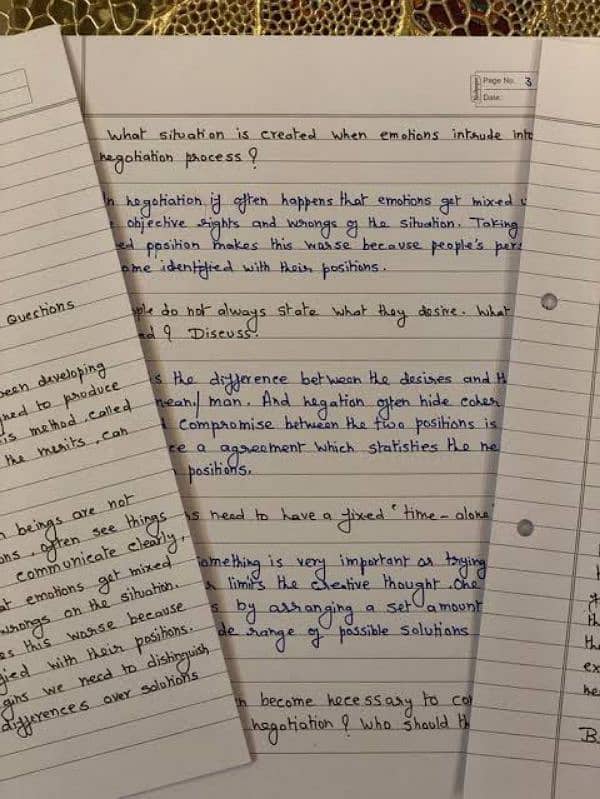 Page No. 3
Date:
What situation is created when emotions intrude into
negotiation process ?
In negotiation if often happens that emotions get mixed
objective rights and wrongs of the situation. Taking
position makes this worse because people's
identified with their positions.
do not always state what they desire. What
? Discuss.
the difference between the desires and
mean/ man. And negation often hide
Compromise between the two positions is
a agreement which statisties the
positions.
need to have a fixed "time - alone
something is very important or trying
limits the creative thought. One
by arranging a set amount
range of possible solutions
become necessary to
negotiation ? Who should
Questions
been developing
to produce
is method, called
the merits, can
beings are not
often see things
communicate clearly,
emotions get mixed
wrongs on the situation.
this worse because
with their positions.
we need to distinguish
differences over solutions
B